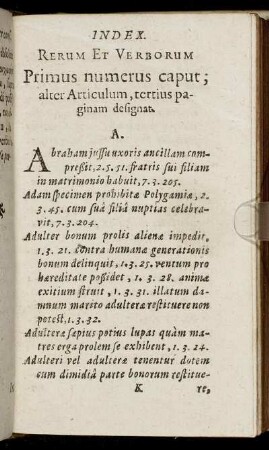 INDEX.
RERUM ET VERBORUM
Primus numerus caput;
alter Articulum, tertius pa-
ginam designat.
A.
Abraham jussu uxoris ancillam com-
pressit, 2. 5. 51. fratris sui filiam
in matrimonio habuit, 7. 3. 205.
Adam specimen prohibitæ Polygamiæ, 2.
3. 45. cum suâ filiâ nuptias celebra-
vit, 7. 3. 204.
Adulter bonum prolis alienæ impedit,
1. 3. 21. contra humanæ generationis
bonum delinquit, 1. 3. 25. ventum pro
hæreditate possidet, 1. 3. 28. animæ
exitium struit, 1. 3. 31. illatum da-
mnum marito adulteræ restituere non
potest, 1. 3. 32.
Adulteræ sæpius potius lupat quàm ma-
tres erga prolem se exhibent, 1. 3. 24.
Adulteri vel adulteræ tenentur dotem
cum dimidiâ parte bonorum restitue-
K re,